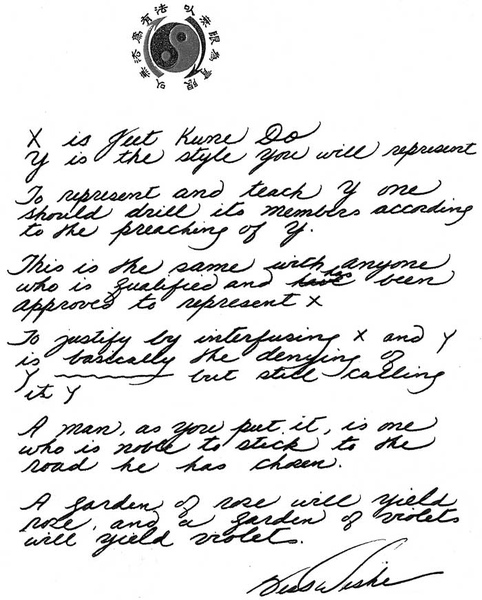 以無法為有法 以無限為有限
X is Jeet Kune Do
Y is the style you will represent
To represent and teach Y one
should drill its members according
to the preaching of Y.
This is the same with anyone
who is qualified and has been
approved to represent X
To justify by interfusing X and Y
is basically the denying of
Y ——— but still calling
it Y
A man, as you put it, is one
who is noble to stick to the
road he has chosen.
A garden of rose will yield
rose, and a garden of violets
will yield violets.
Best Wishes